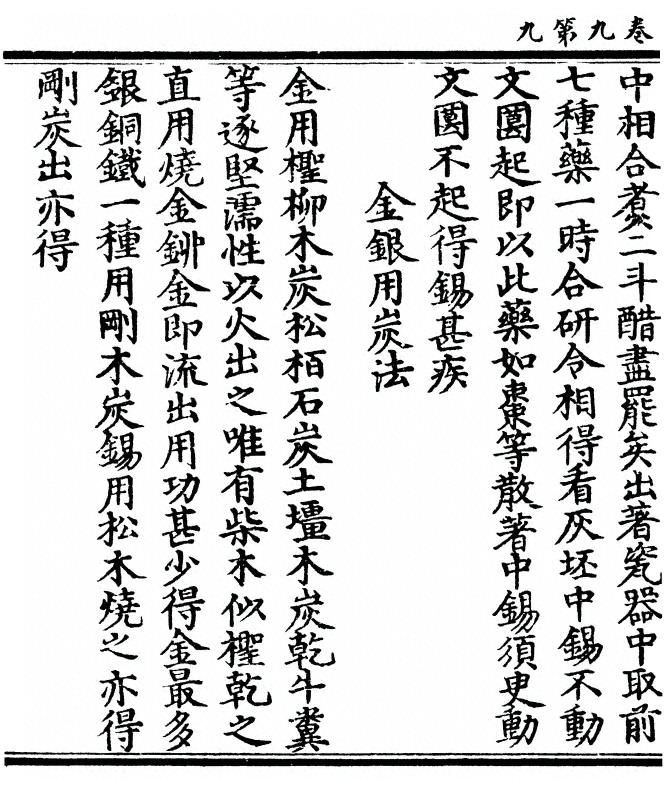 卷九第九
中相合煑二斗醋盡罷矣出著瓷器中取前
七種藥一時合研令相得看灰坯中錫不動
文圓起即以此藥如棗等散著中錫須臾動
文圓不起得錫甚疾
金銀用炭法
金用檉柳木炭松栢石炭土壃木炭乾牛糞
等逐堅濡性以火出之唯有柴木似檉乾之
直用燒金鉚金即流出用功甚少得金最多
銀銅鐵一種用剛木炭錫用松木燒之亦得
剛炭出亦得